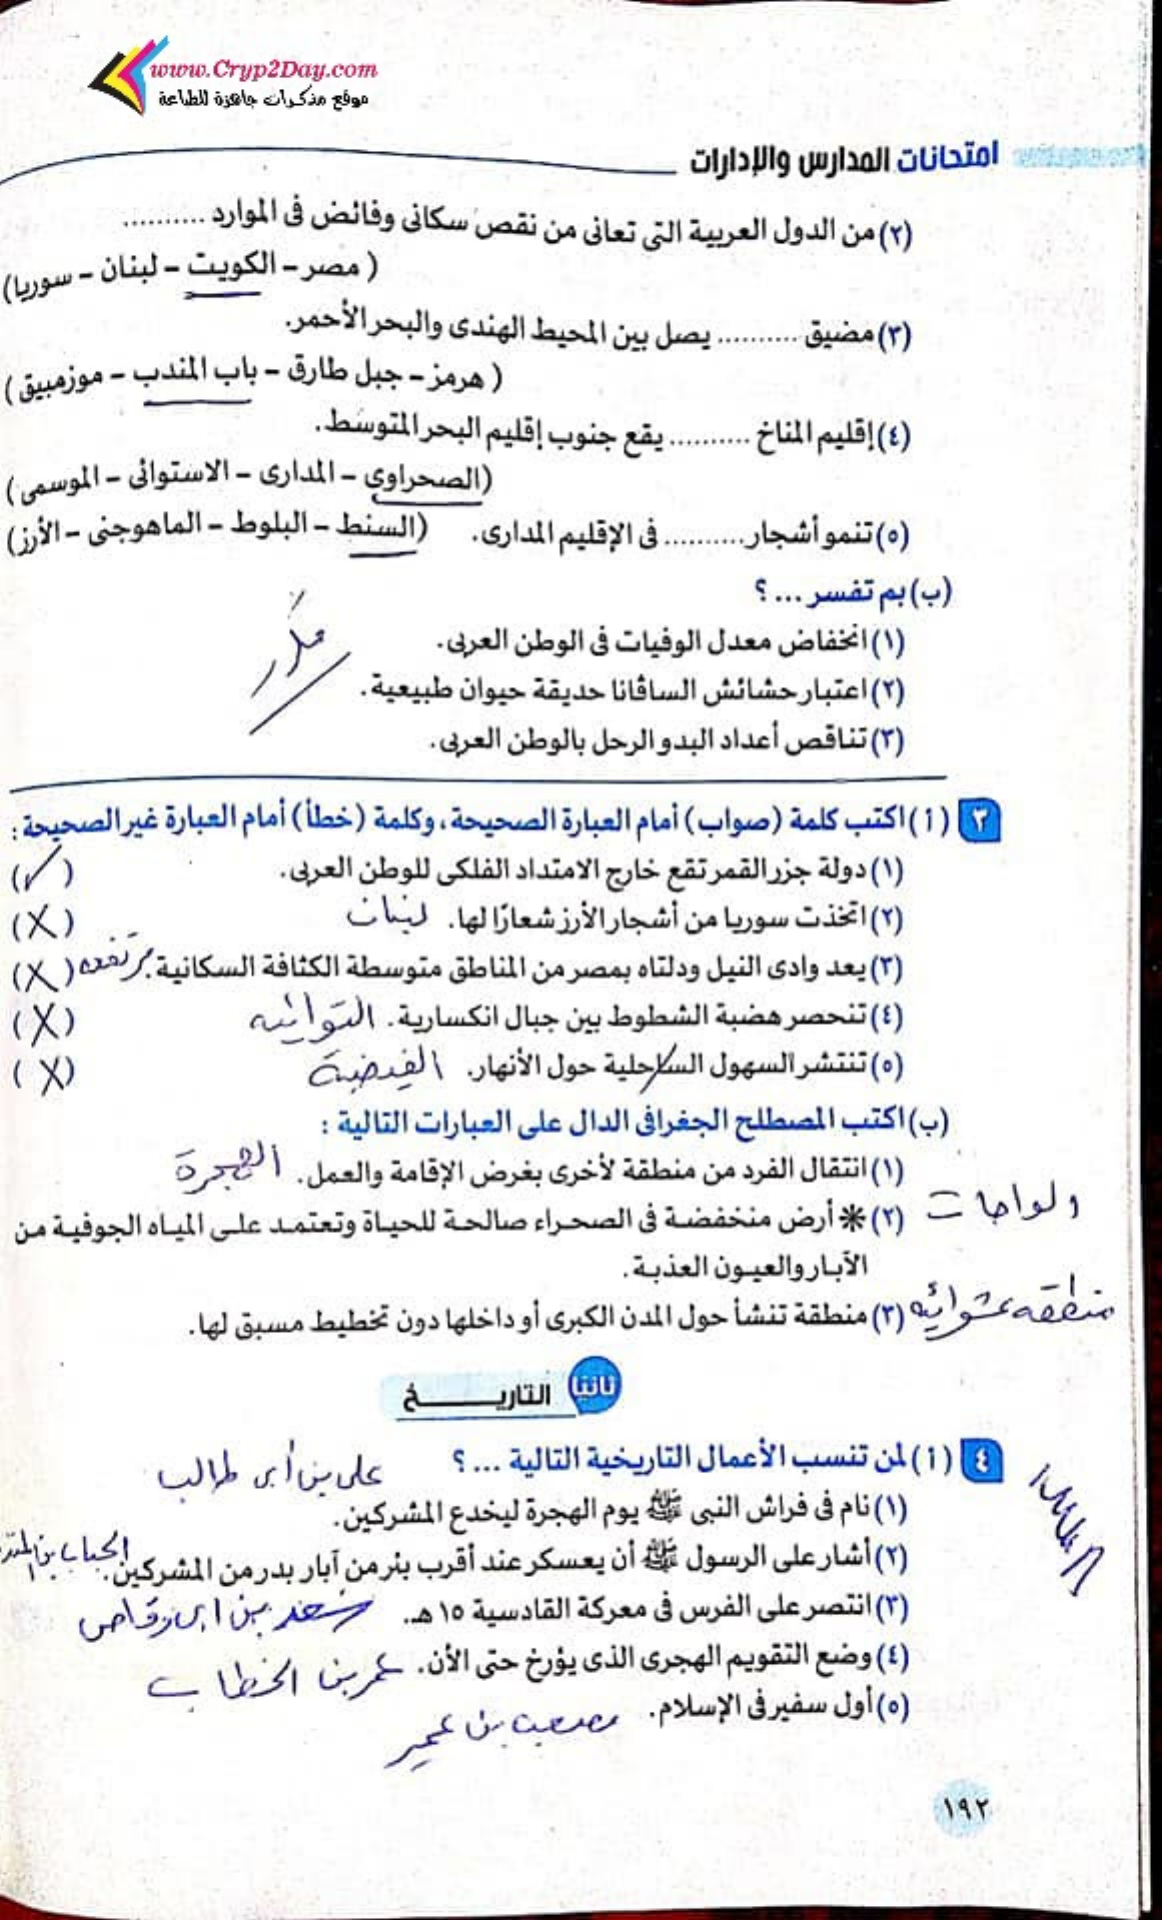 www.Cryp2Day.com
موقع مذكرات جاهزة للطباعة
امتحانات المدارس والإدارات
(٢) من الدول العربية التى تعانى من نقص سكانى وفائض فى الموارد ..........
( مصر - الكويت - لبنان - سوريا)
(٣) مضيق .......... يصل بين المحيط الهندى والبحر الأحمر.
( هرمز - جبل طارق - باب المندب - موزمبيق )
(٤) إقليم المناخ .......... يقع جنوب إقليم البحر المتوسط.
(الصحراوى - المدارى - الاستوائى - الموسمى)
(٥) تنمو أشجار .......... فى الإقليم المدارى. (السنط - البلوط - الماهوجنى - الأرز)
(ب) بم تفسر ... ؟
(١) انخفاض معدل الوفيات فى الوطن العربى.
مكرر
(٢) اعتبار حشائش الساڤانا حديقة حيوان طبيعية.
(٣) تناقص أعداد البدو الرحل بالوطن العربى.
٣ (أ) اكتب كلمة (صواب) أمام العبارة الصحيحة، وكلمة (خطأ) أمام العبارة غير الصحيحة :
(١) دولة جزر القمر تقع خارج الامتداد الفلكى للوطن العربى. (✓)
(٢) اتخذت سوريا من أشجار الأرز شعارًا لها. لبنان (X)
(٣) يعد وادى النيل ودلتاه بمصر من المناطق متوسطة الكثافة السكانية. مرتفعه (X)
(٤) تنحصر هضبة الشطوط بين جبال انكسارية. التوائيه (X)
(٥) تنتشر السهول الساحلية حول الأنهار. الفيضية (X)
(ب) اكتب المصطلح الجغرافى الدال على العبارات التالية :
(١) انتقال الفرد من منطقة لأخرى بغرض الإقامة والعمل. الهجرة
(٢) * أرض منخفضة فى الصحراء صالحة للحياة وتعتمد على المياه الجوفية من
الواحات
الآبار والعيون العذبة.
(٣) منطقة تنشأ حول المدن الكبرى أو داخلها دون تخطيط مسبق لها.
منطقه عشوائيه
ثانيًا التاريخ
٤ (أ) لمن تنسب الأعمال التاريخية التالية ... ؟
على بن أبى طالب
(١) نام فى فراش النبى ﷺ يوم الهجرة ليخدع المشركين.
(٢) أشار على الرسول ﷺ أن يعسكر عند أقرب بئر من آبار بدر من المشركين. الحباب بن المنذر
(٣) انتصر على الفرس فى معركة القادسية ١٥ هـ. سعد بن ابى وقاص
(٤) وضع التقويم الهجرى الذى يؤرخ حتى الأن. عمر بن الخطاب
(٥) أول سفير فى الإسلام. مصعب بن عمير
١٩٢